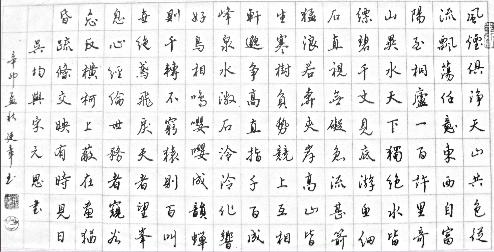 風煙俱淨天山共色從
流飄蕩任意東西自富
陽至桐廬一百許里奇
山異水天下獨絕水皆
縹碧千丈見底游魚細
石直視無礙急流甚箭
猛浪若奔夾岸高山皆
生寒樹負勢競上互相
軒邈爭高直指千百成
峰泉水激石泠泠作響
好鳥相鳴嚶嚶成韻蟬
則千轉不窮猿則百叫
無絕鳶飛戾天者望峯
息心經綸世務者窺谷
忘反橫柯上蔽在晝猶
昏疏條交映有時見日
吳均與宋元思書
辛卯孟秋